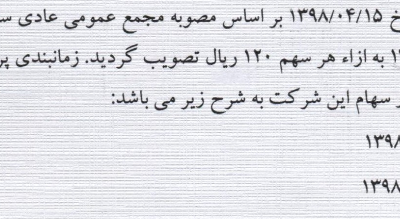 ۱۳۹۸/۰۴/۱۵ بر اساس مصوبه مجمع عمومی عادی
به ازاء هر سهم ۱۲۰ ریال تصویب گردید. زمانبندی
سهام این شرکت به شرح زیر می باشد:
۱۳۹۸
۱۳۹۸